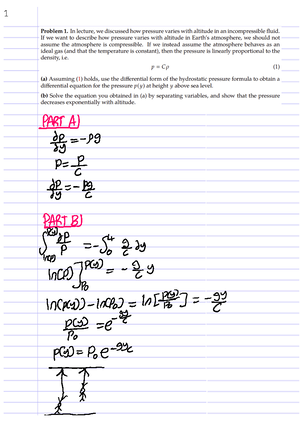 1
Problem 1. In lecture, we discussed how pressure varies with altitude in an incompressible fluid.
If we want to describe how pressure varies with altitude in Earth's atmosphere, we should not
assume the atmosphere is compressible. If we instead assume the atmosphere behaves as an
ideal gas (and that the temperature is constant), then the pressure is linearly proportional to the
density, i.e.
p = Cρ (1)
(a) Assuming (1) holds, use the differential form of the hydrostatic pressure formula to obtain a
differential equation for the pressure p(y) at height y above sea level.
(b) Solve the equation you obtained in (a) by separating variables, and show that the pressure
decreases exponentially with altitude.
PART A)
∂p/∂y = -ρg
ρ = p/c
∂p/∂y = -pg/c
PART B)
∂p/p = -∫₀ʸ g/c ∂y
ln(p)]p₀^p(y) = -g/c y
ln(p(y)) - ln(p₀) = ln[p(y)/p₀] = -gy/c
p(y)/p₀ = e^-gy/c
p(y) = p₀ e^-gy/c